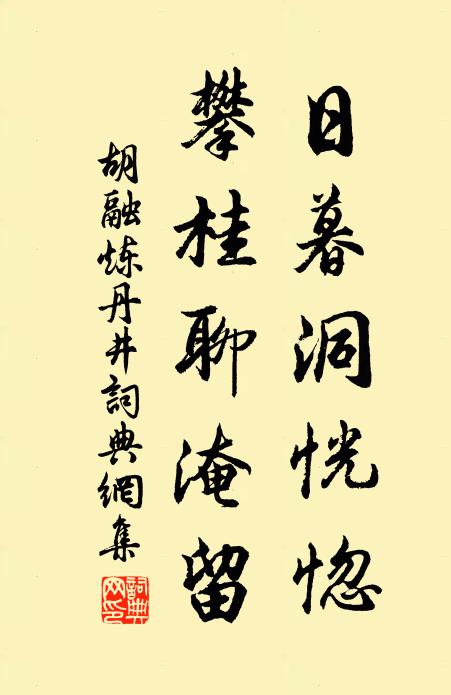 日暮洞恍惚
攀桂聊淹留
胡融炼丹井詞典網集
詞典網印